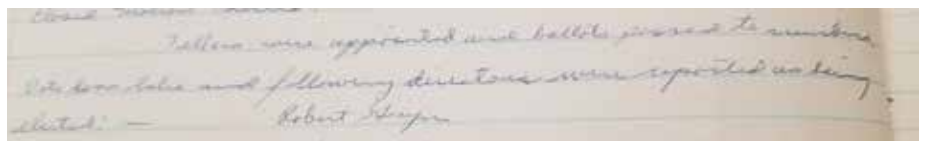 closed motion carried.
Tellers were appointed and ballots passed to members.
Vote was taken and following directors were reported as being
elected: — Robert